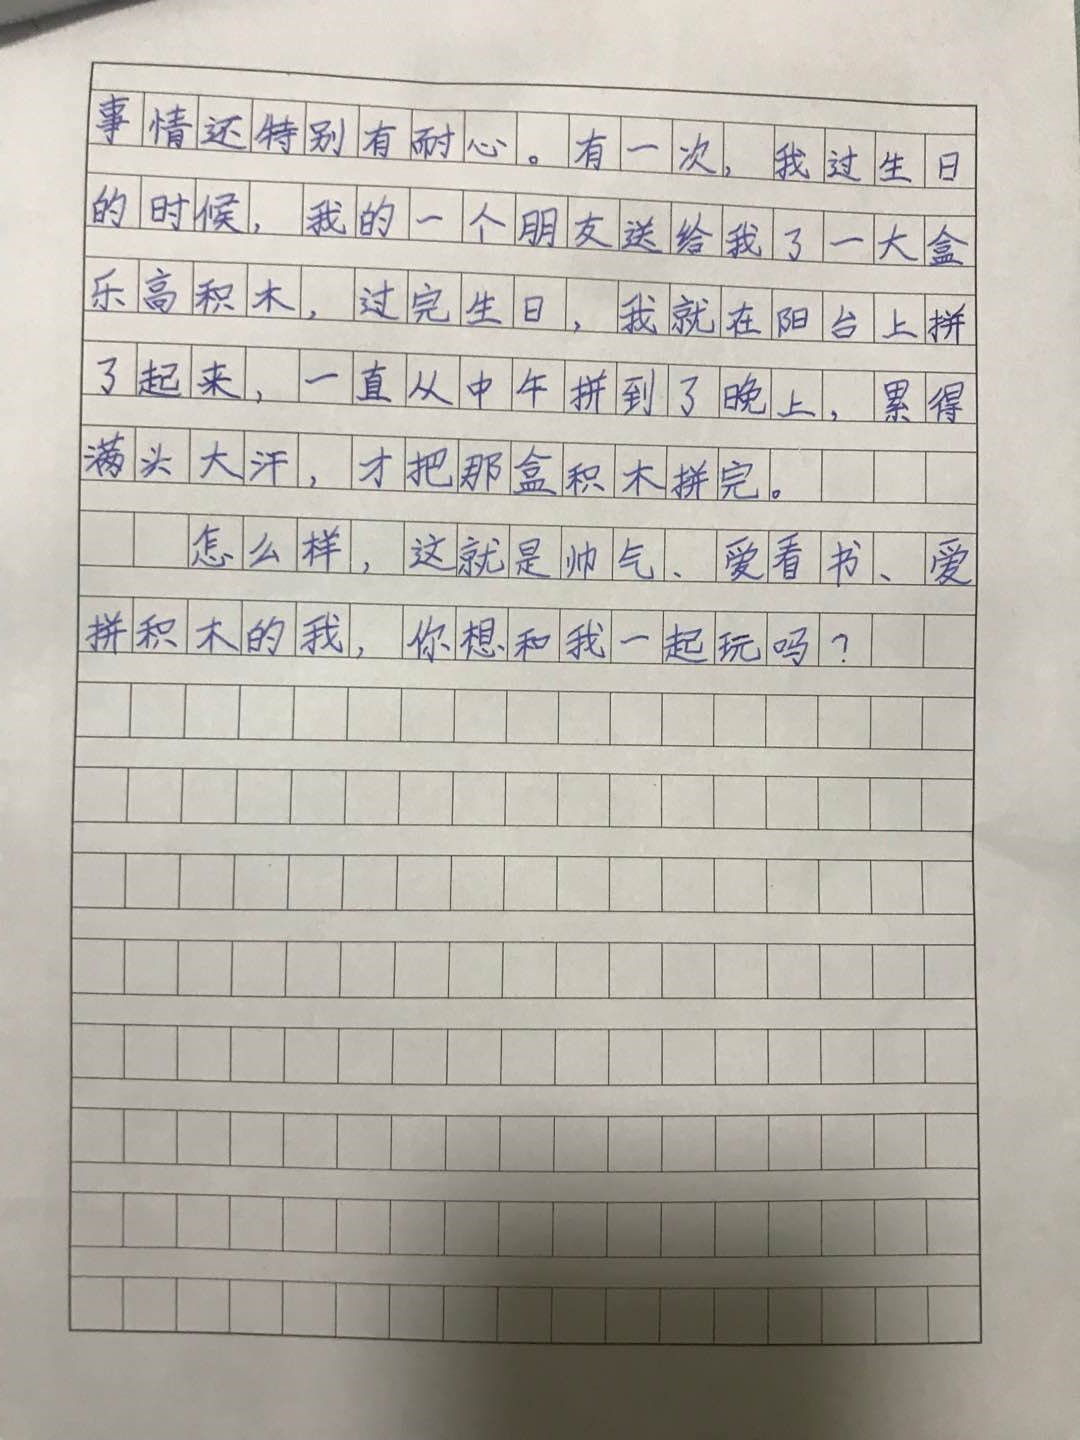 事情还特别有耐心。有一次，我过生日
的时候，我的一个朋友送给我了一大盒
乐高积木，过完生日，我就在阳台上拼
了起来，一直从中午拼到了晚上，累得
满头大汗，才把那盒积木拼完。
怎么样，这就是帅气、爱看书、爱
拼积木的我，你想和我一起玩吗？